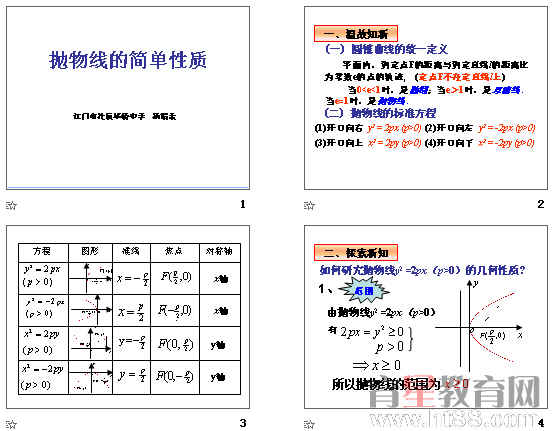 抛物线的简单性质
1
一、温故知新
(一) 圆锥曲线的统一定义
平面内，到定点F的距离与到定直线l的距离比
为常数e的点的轨迹，(定点F不在定直线l上)
当0<e<1时，是椭圆；当e>1时，是双曲线.
当e=1时，是抛物线.
(二) 抛物线的标准方程
(1)开口向右 y² = 2px (p>0) (2)开口向左 y² = -2px (p>0)
(3)开口向上 x² = 2py (p>0) (4)开口向下 x² = -2py (p>0)
2
方程 图形 准线 焦点 对称轴
y² = 2px (p > 0) x = -p/2 F(p/2,0) x轴
y² = -2px (p > 0) x = p/2 F(-p/2,0) x轴
x² = 2py (p > 0) y = -p/2 F(0, p/2) y轴
x² = -2py (p > 0) y = p/2 F(0,-p/2) y轴
3
二、探索新知
如何研究抛物线y² =2px（p>0）的几何性质?
1、 范围
由抛物线y² =2px（p>0）
有 2px = y² ≥ 0
p > 0
⇒ x ≥ 0
所以抛物线的范围为 x ≥ 0
y
o F(p/2,0) x
4
育星教育网
www.ht88.com